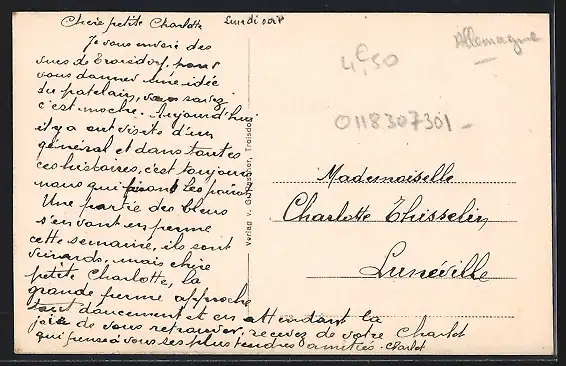 Chère petite Charlotte
Lundi soir
Je vous envoie des
vues de Troisdorf, pour
vous donner une idée
du patelain, vous savez
c'est moche. Aujourd'hui
il y a eut visite d'un
général et dans toutes
ces histoires, c'est toujours
nous qui les
Une partie des bleus
s'en vont en perme
cette semaine, ils sont
veinards, mais chère
petite Charlotte, la
grande perme approche
tout doucement et en attendant la
joie de vous retrouver, recevez de votre Charlot
qui pense à vous ses plus tendres amitiés. Charlot
Verlag v. Troisdorf
Allemagne
4€,50
0118307301 -
Mademoiselle
Charlotte Thisselin
Lunéville